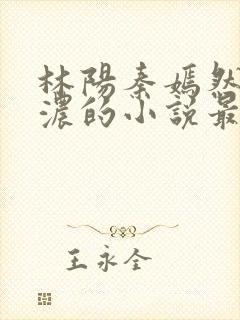 林陽秦嫣然
濃的小說最
王永全